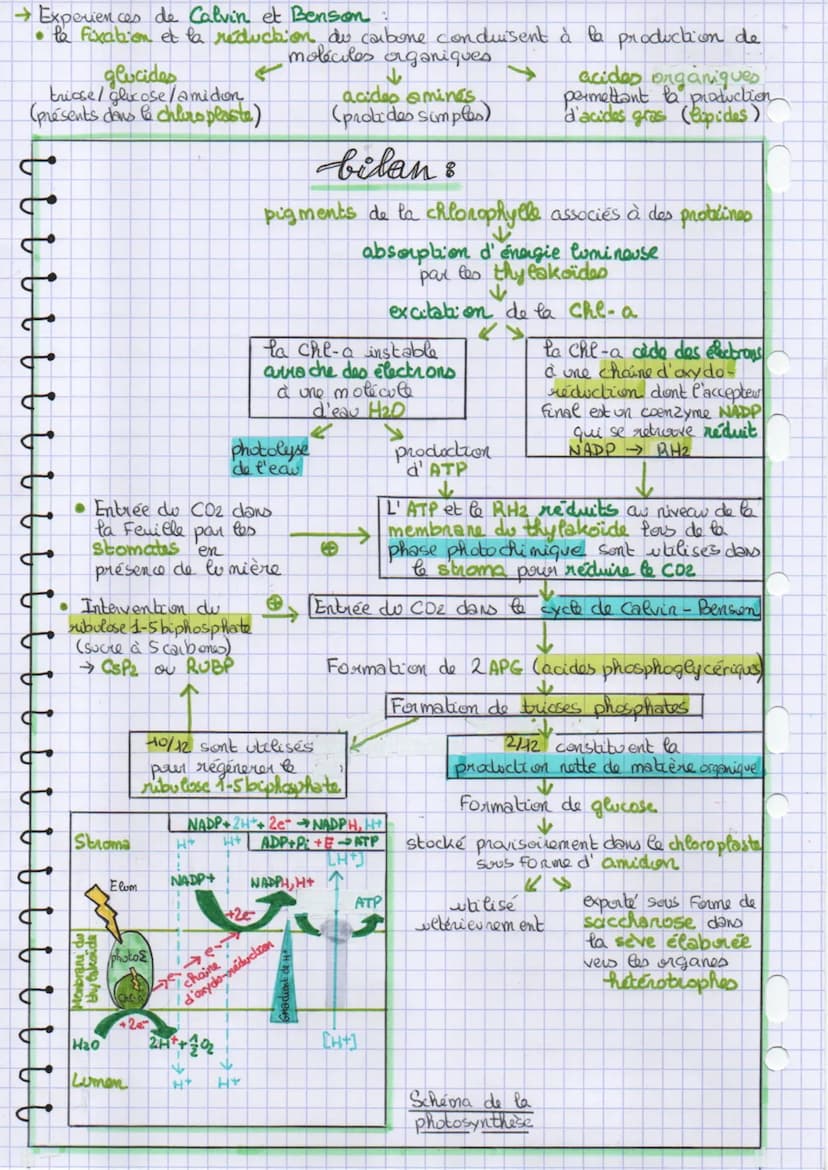 → Experiences de Calvin et Benson :
• la fixation et la réduction du carbone conduisent à la production de
molécules organiques
glucides
triose/glucose/amidon
(présents dans le chloroplaste)
acides aminés
(protides simples)
acides organiques
permettant la production
d'acides gras (lipides)
bilan :
pigments de la chlorophylle associés à des protéines
absorption d'énergie lumineuse
par les thylakoïdes
excitation de la Chl-a
la Chl-a instable
arrache des électrons
à une molécule
d'eau H2O
la Chl-a cède des électrons
à une chaîne d'oxydo-
réduction dont l'accepteur
final est un coenzyme NADP
qui se retrouve réduit
NADP → RH2
photolyse
de l'eau
production
d'ATP
• Entrée du CO2 dans
la feuille par les
stomates en
présence de lumière
L'ATP et le RH2 réduits au niveau de la
membrane du thylakoïde lors de la
phase photochimique sont utilisés dans
le stroma pour réduire le CO2
• Intervention du
ribulose 1-5 biphosphate
(sucre à 5 carbones)
→ C5P2 ou RUBP
Entrée du CO2 dans le cycle de Calvin-Benson
Formation de 2 APG (acides phosphoglycériques)
Formation de trioses phosphates
10/12 sont utilisés
pour régénerer le
ribulose 1-5 biphosphate
2/12 constituent la
production nette de matière organique
Formation de glucose
stocké provisoirement dans le chloroplaste
sous forme d'amidon
utilisé
ultérieurement
exporté sous forme de
saccharose dans
la sève élaborée
vers les organes
hétérotrophes
NADP+ 2H+ + 2e- → NADPH, H+
Stroma
H+ H+
ADP+Pi + E → ATP
[H+]
Elum
NADP+
NADPH, H+
ATP
+2e-
Membrane du
thylakoïde
photoΣ
Chl-a
e-
e-
chaîne
d'oxydo-réduction
Gradient de H+
+2e-
H2O
2H+ + ½ O2
[H+]
Lumen
H+ H+
Schéma de la
photosynthèse